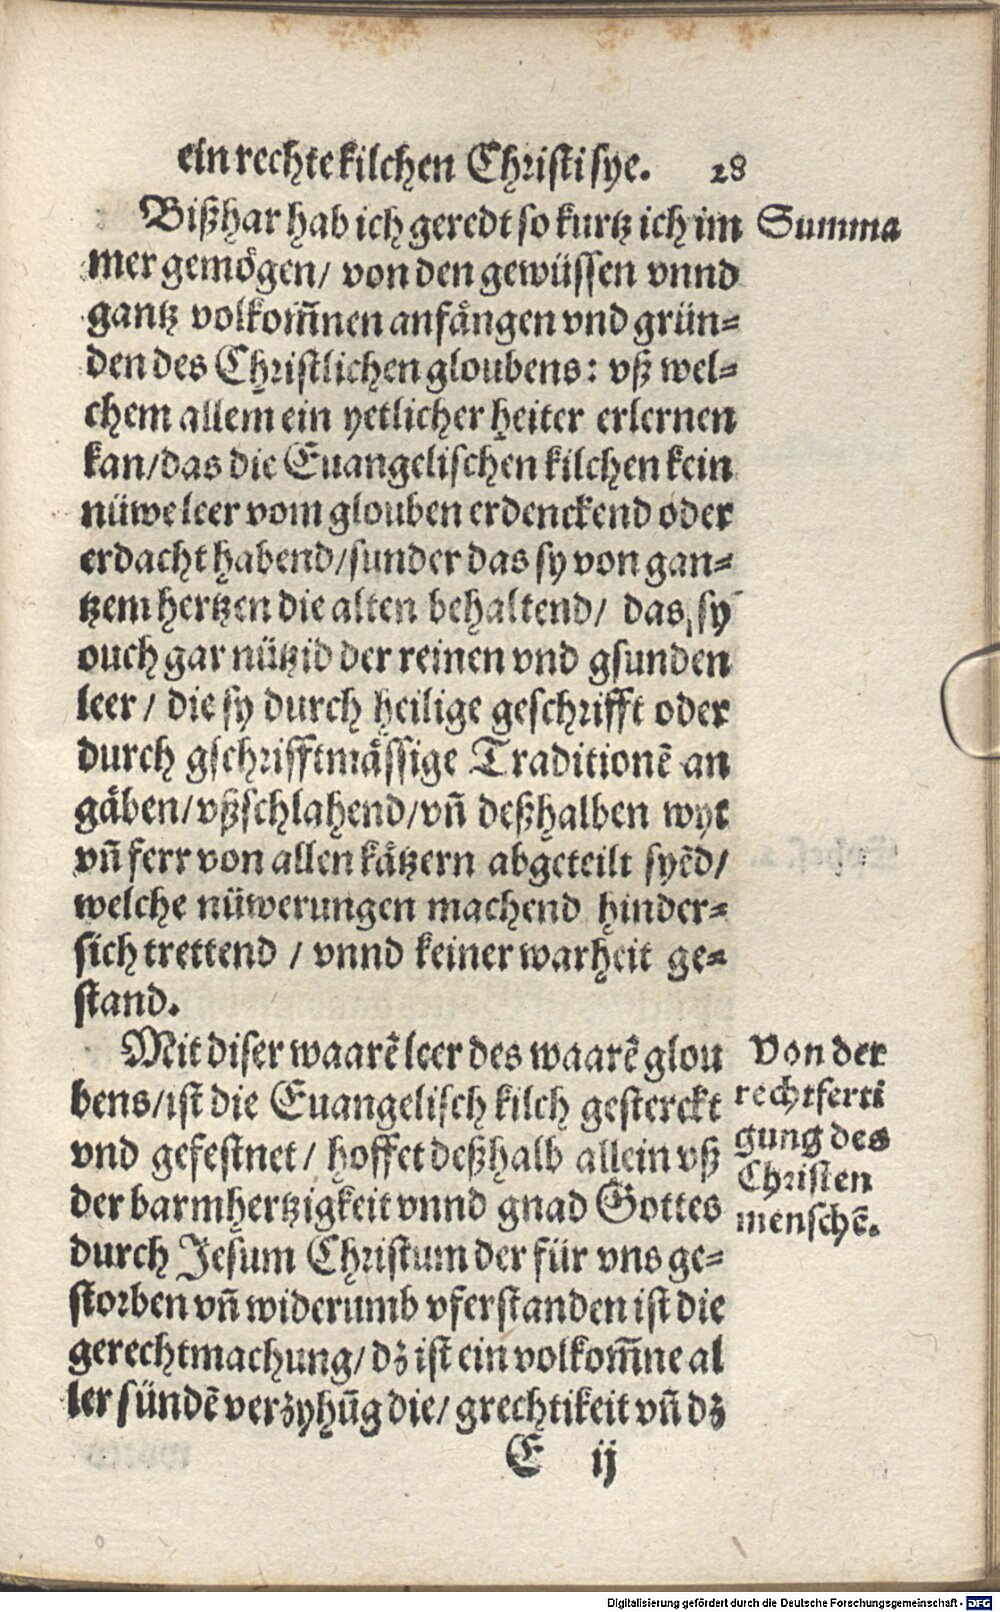 ein rechte kilchen Christi sye. 28
Bißhar hab ich geredt so kurtz ich im
Summa
mer gemögen/ von den gewüssen vnnd
gantz volkom̃nen anfängen vnd grün⸗
den des Christlichen gloubens: vß wel⸗
chem allem ein yetlicher heiter erlernen
kan/das die Euangelischen kilchen kein
nüwe leer vom glouben erdenckend oder
erdacht habend/sunder das sy von gan⸗
tzem hertzen die alten behaltend/ das sy
ouch gar nützid der reinen vnd gsunden
leer / die sy durch heilige geschrifft oder
durch gschrifftmässige Traditionẽ an
gäben/vßschlahend/vñ deßhalben wyt
vñ ferr von allen kätzern abgeteilt syẽd/
welche nüwerungen machend hinder⸗
sich trettend / vnnd keiner warheit ge⸗
stand.
Mit diser waarẽ leer des waarẽ glou
bens/ist die Euangelisch kilch gesterckt
vnd gefestnet/ hoffet deßhalb allein vß
der barmhertzigkeit vnnd gnad Gottes
durch Jesum Christum der für vns ge⸗
storben vñ widerumb vferstanden ist die
gerechtmachung/ dz ist ein volkom̃ne al
ler sündẽ verzyhũg die/ grechtikeit vñ dz
Von der
rechtferti
gung des
Christen
menschẽ.
E ij
Digitalisierung gefördert durch die Deutsche Forschungsgemeinschaft - DFG